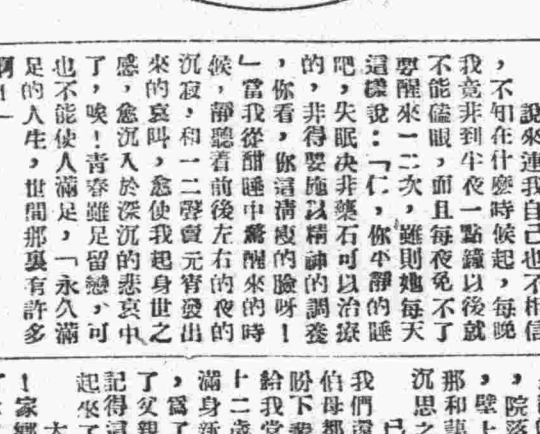 說來連我自己也不相信
，不知在什麼時候起，每晚
我竟非到半夜一點鐘以後就
不能儘眼，而且每夜免不了
要醒來一二次，雖則她每天
這樣說：「仁，你平靜的睡
吧，失眠决非藥石可以治療
的，非得要施以精神的調養
，你看，你這清瘦的臉呀！
」當我從酣睡中驚醒來的時
候，靜聽着前後左右的夜的
沉寂，和一二聲賣元宵發出
來的哀叫，愈使我起身世之
感，愈沉入於深沉的悲哀中
了，唉！青春雖足留戀，可
也不能使人滿足，「永久滿
足的人生，世間那裏有許多
啊！」
，院落
，壁上
那和藹
沉思之
已
我們還
伯母都
盼下
給我
十二歲
滿身新
，爲了
了父親
記得這
起來了
大
！家鄉